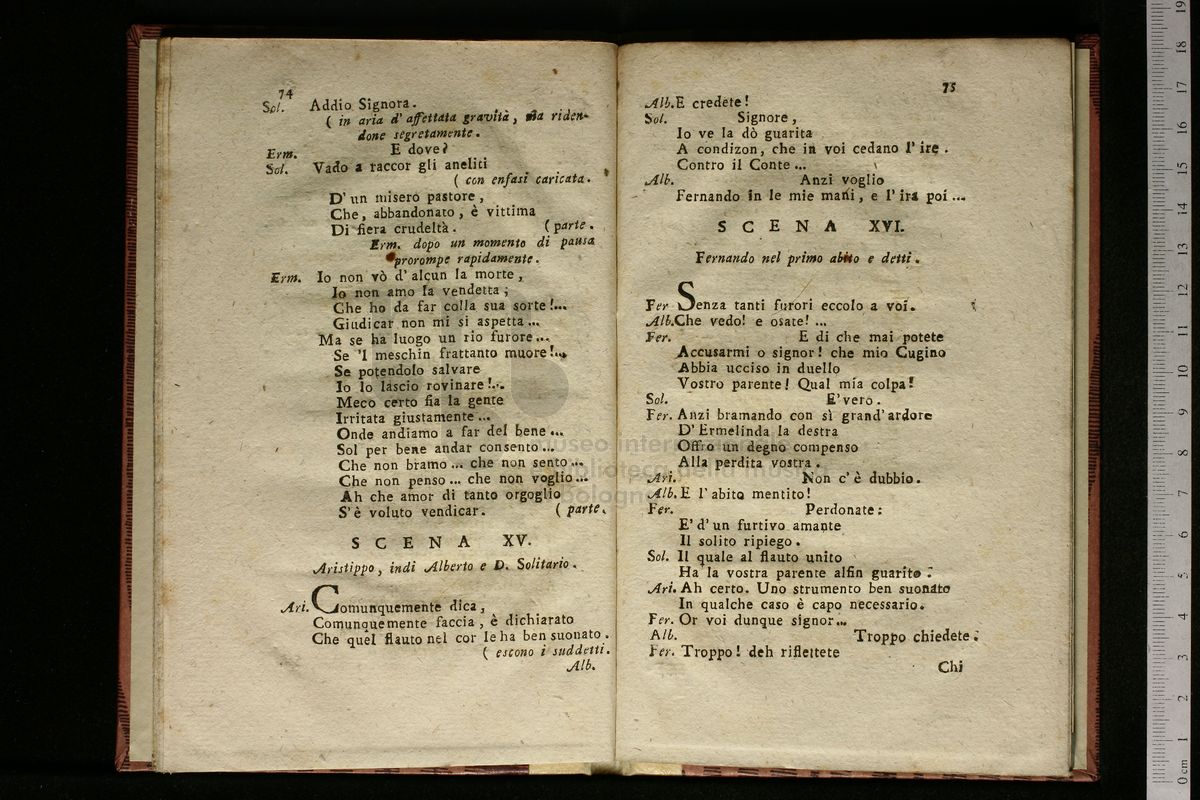 74
Sol. Addio Signora.
( in aria d' affettata gravità, ma riden-
done segretamente.
Erm. E dove?
Sol. Vado a raccor gli aneliti
( con enfasi caricata.
D' un misero pastore,
Che, abbandonato, è vittima
Di fiera crudeltà. ( parte.
Erm. dopo un momento di pausa
prorompe rapidamente.
Erm. Io non vò d' alcun la morte,
Io non amo la vendetta;
Che ho da far colla sua sorte!...
Giudicar non mi si aspetta...
Ma se ha luogo un rio furore...
Se 'l meschin frattanto muore!...
Se potendolo salvare
Io lo lascio rovinare!...
Meco certo fia la gente
Irritata giustamente...
Onde andiamo a far del bene...
Sol per bene andar consento...
Che non bramo... che non sento...
Che non penso... che non voglio...
Ah che amor di tanto orgoglio
S'è voluto vendicar. ( parte.
SCENA XV.
Aristippo, indi Alberto e D. Solitario.
Ari. Comunquemente dica,
Comunquemente faccia, è dichiarato
Che quel flauto nel cor le ha ben suonato.
( escono i suddetti.
Alb.
75
Alb. E credete!
Sol. Signore,
Io ve la dò guarita
A condizon, che in voi cedano l' ire.
Contro il Conte...
Alb. Anzi voglio
Fernando in le mie mani, e l' ira poi...
SCENA XVI.
Fernando nel primo abito e detti.
Fer Senza tanti furori eccolo a voi.
Alb. Che vedo! e osate!...
Fer. E di che mai potete
Accusarmi o signor! che mio Cugino
Abbia ucciso in duello
Vostro parente! Qual mia colpa!
Sol. E' vero.
Fer. Anzi bramando con sì grand' ardore
D' Ermelinda la destra
Offro un degno compenso
Alla perdita vostra.
Ari. Non c' è dubbio.
Alb. E l' abito mentito!
Fer. Perdonate:
E' d' un furtivo amante
Il solito ripiego.
Sol. Il quale al flauto unito
Ha la vostra parente alfin guarito.
Ari. Ah certo. Uno strumento ben suonato
In qualche caso è capo necessario.
Fer. Or voi dunque signor...
Alb. Troppo chiedete.
Fer. Troppo! deh riflettete
Chi
museo internazionale
e biblioteca della musica
bologna
19
18
17
16
15
14
13
12
11
10
9
8
7
6
5
4
3
2
1
0 cm